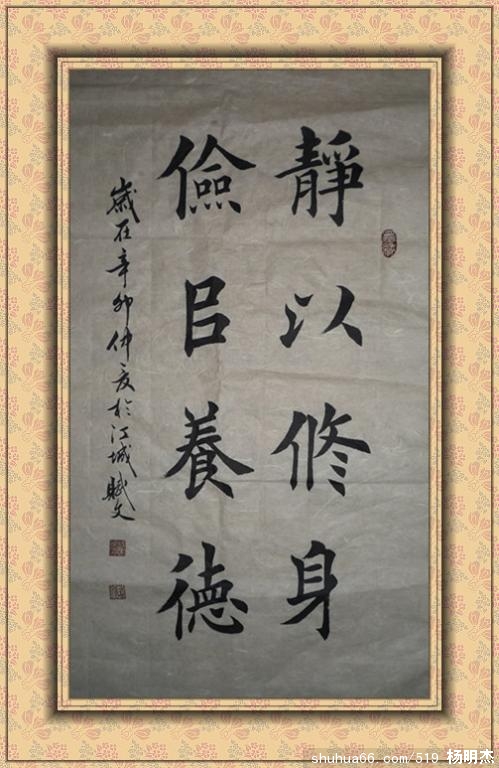 靜以修身
儉㠯養德
歲在辛卯仲夏於江城賦文
shuhua66.com/519 杨明杰